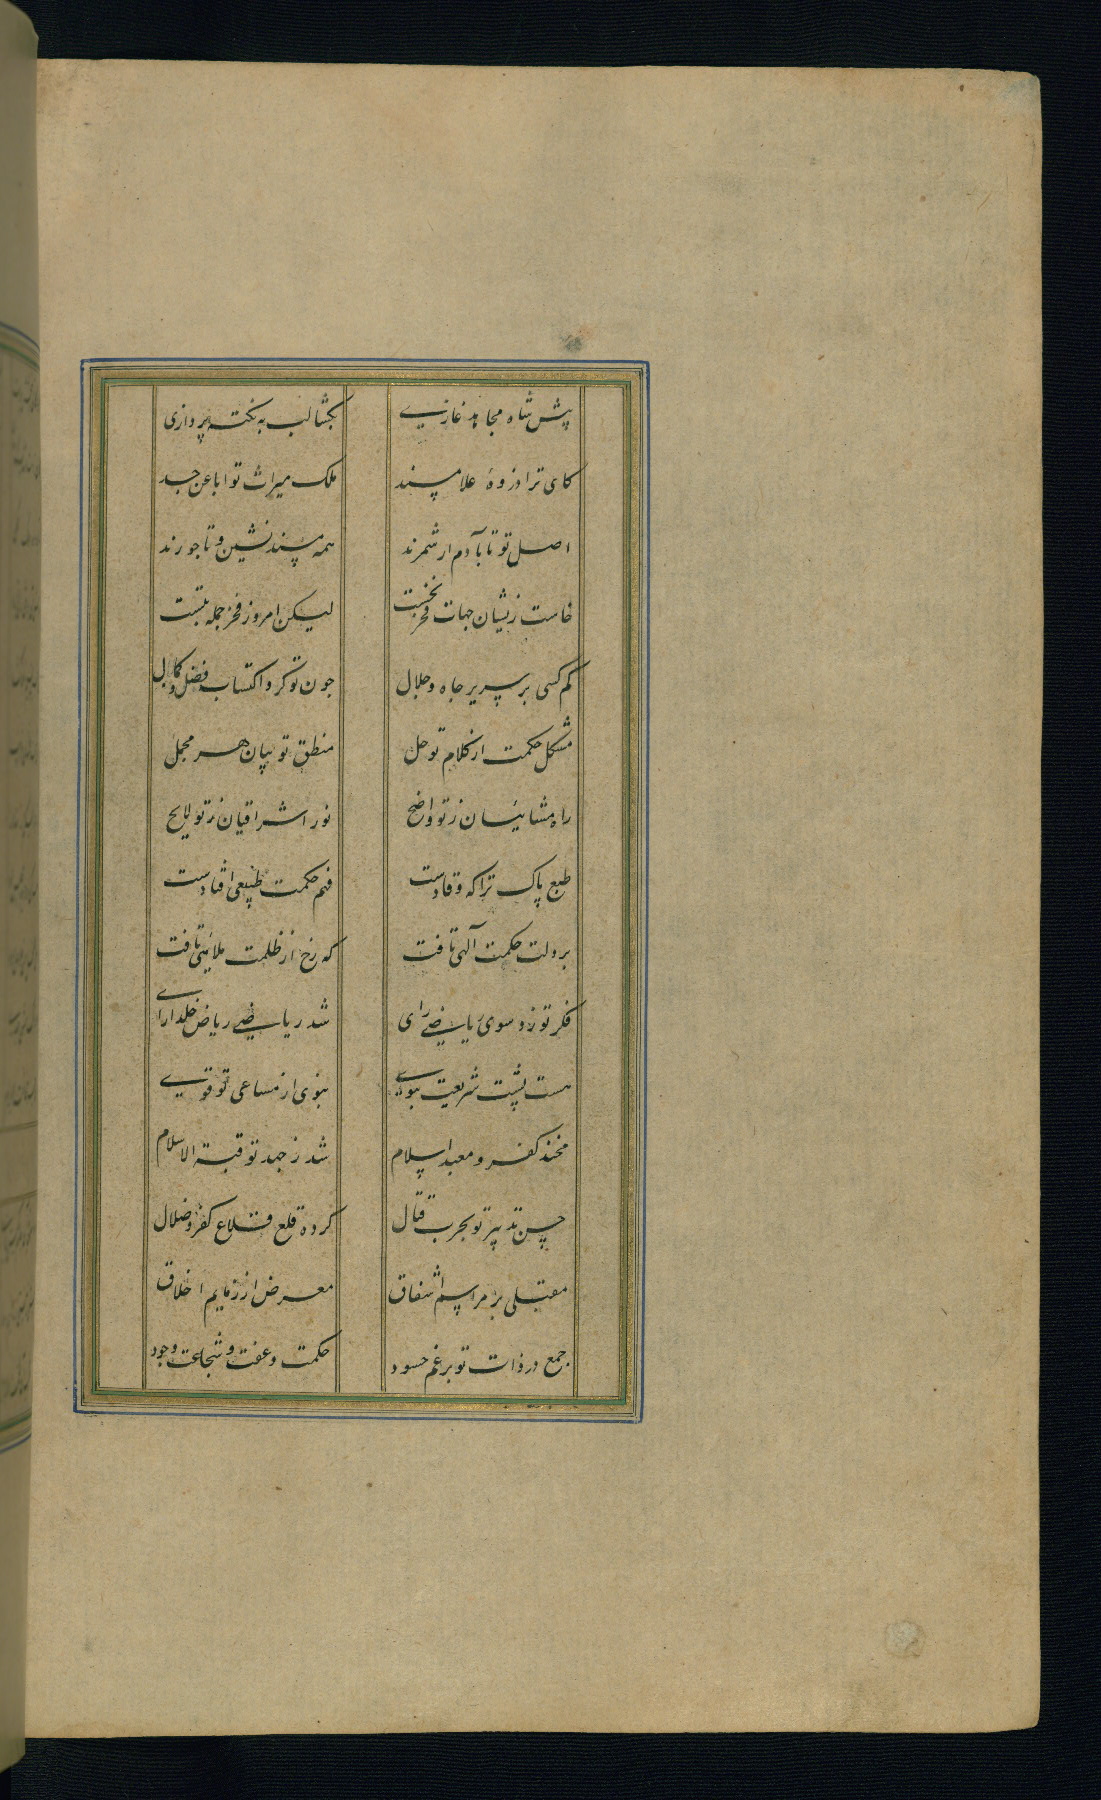 پیش شاه مجاهد غازی بکشا لب به نکته پردازی
کای ترا ذروهٔ علا مسند ملک میراث تو ابا عن جد
اصل تو تا بآدم ار شمرند همه مسند نشین و تاجورند
خاست زیشان جهات فخر نخست لیکن امروز فخر جمله بتست
کم کسی بر سریر جاه و جلال جون تو کرد اکتساب فضل و کمال
مشکل حکمت از کلام تو حل منطق تو بیان هر مجمل
راه مشائیان ز تو واضح نور اشراقیان ز تو لایح
طبع پاک ترا که وقادست فهم حکمت طبیعی افتادست
بر دلت حکمت آلهی تافت که رخ از ظلمت ملاهی تافت
فکر تو زد سوی ریاضی رای شد ریاضی ریاض خلد ارای
هست پشت شریعت نبوی بنوی از مساعی تو قوی
کفر و معبد اسلام شد ز جهد تو قبة الاسلام
حسن تدبیر تو بحرب قتال کرده قلع قلاع کفر و ضلال
مقبلی بر مراسم اشفاق معرض از ذمایم اخلاق
جمع در ذات تو برغم حسود حکمت و عفت و شجاعت وجود